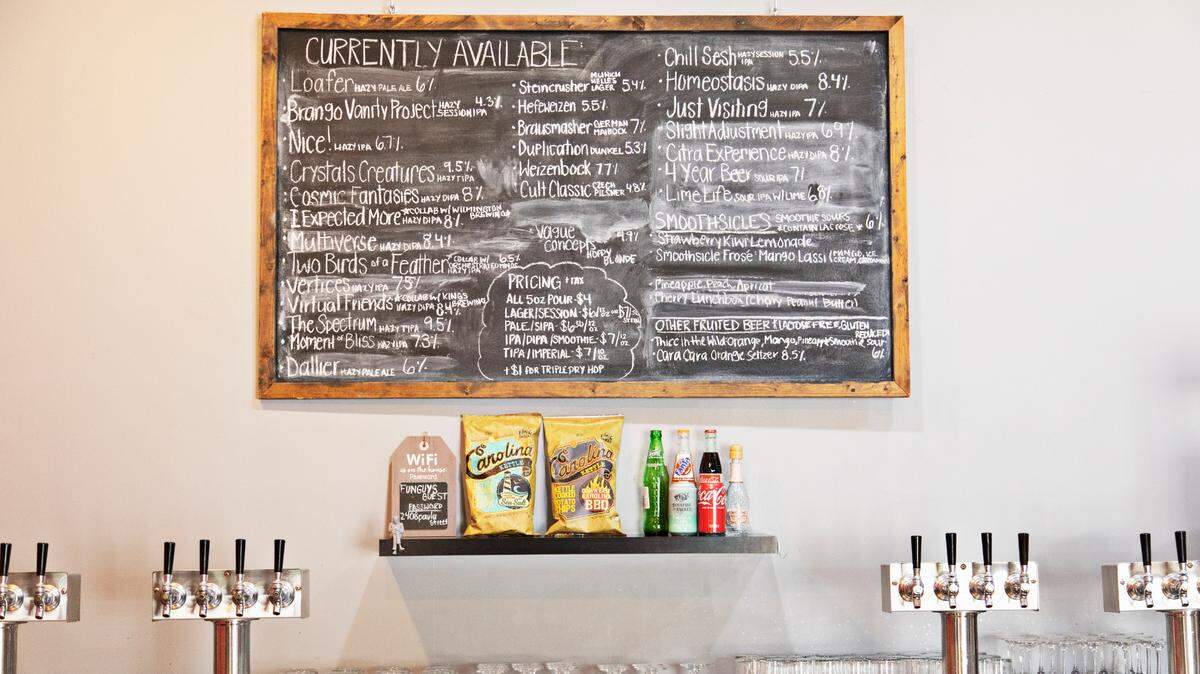 CURRENTLY AVAILABLE
Loafer HAZY PALE ALE 6%
Brango Vanity Project HAZY SESSION IPA 4.3%
Nice! HAZY IPA 6.7%
Crystals Creatures HAZY TIPA 9.5%
Cosmic Fantasies HAZY DIPA 8%
I Expected More *COLLAB W/ WILMINGTON BREWING HAZY DIPA 8%
Multiverse HAZY DIPA 8.4%
Two Birds of a Feather *COLLAB W/ HAZY IPA 6.5%
Vertices HAZY IPA 7.5%
Virtual Friends *COLLAB W/ KINGS BREWING HAZY DIPA 8.4%
The Spectrum HAZY TIPA 9.5%
Moment of Bliss HAZY IPA 7.3%
Dallier HAZY PALE ALE 6%
Steincrusher MUNICH HELLES LAGER 5.4%
Hefeweizen 5.5%
Brausmasher GERMAN MAIBOCK 7%
Duplication DUNKEL 5.3%
Weizenbock 7.7%
Cult Classic CZECH PILSNER 4.8%
Vague Concepts HOPPY BLONDE 4.9%
PRICING + TAX
ALL 5oz POUR - $4
LAGER/SESSION - $6
PALE/SIPA - $6.50/12 oz
IPA/DIPA/SMOOTHIE - $7/12 oz
TIPA/IMPERIAL - $7/
+$1 FOR TRIPLE DRY HOP
Chill Sesh HAZY SESSION IPA 5.5%
Homeostasis HAZY DIPA 8.4%
Just Visiting HAZY IPA 7%
Slight Adjustment HAZY IPA 6.9%
Citra Experience HAZY DIPA 8%
4 Year Beer SOUR IPA 7%
Lime Life SOUR IPA W/ LIME
SMOOTHSICLES SMOOTHIE SOURS *CONTAIN LACTOSE* 6%
Strawberry Kiwi Lemonade
Smoothsicle Frosé Mango Lassi (MANGO, ICE CREAM,
Pineapple, Peach, Apricot
Cherry Lunchbox (Cherry Peanut Butter)
OTHER FRUITED BEER *LACTOSE FREE, GLUTEN REDUCED
Thicc in the Wild: Orange, Mango, Pineapple Smoothie Sour 6%
Cara Cara Orange Seltzer 8.5%
WiFi
is on the house
Password
FUNGUYS
GUEST
PASSWORD
2408paula
street
Carolina
KETTLE
Carolina
KETTLE
KETTLE COOKED POTATO CHIPS
DOWN EAST CAROLINA BBQ
Sprite
Fanta
Coca-Cola